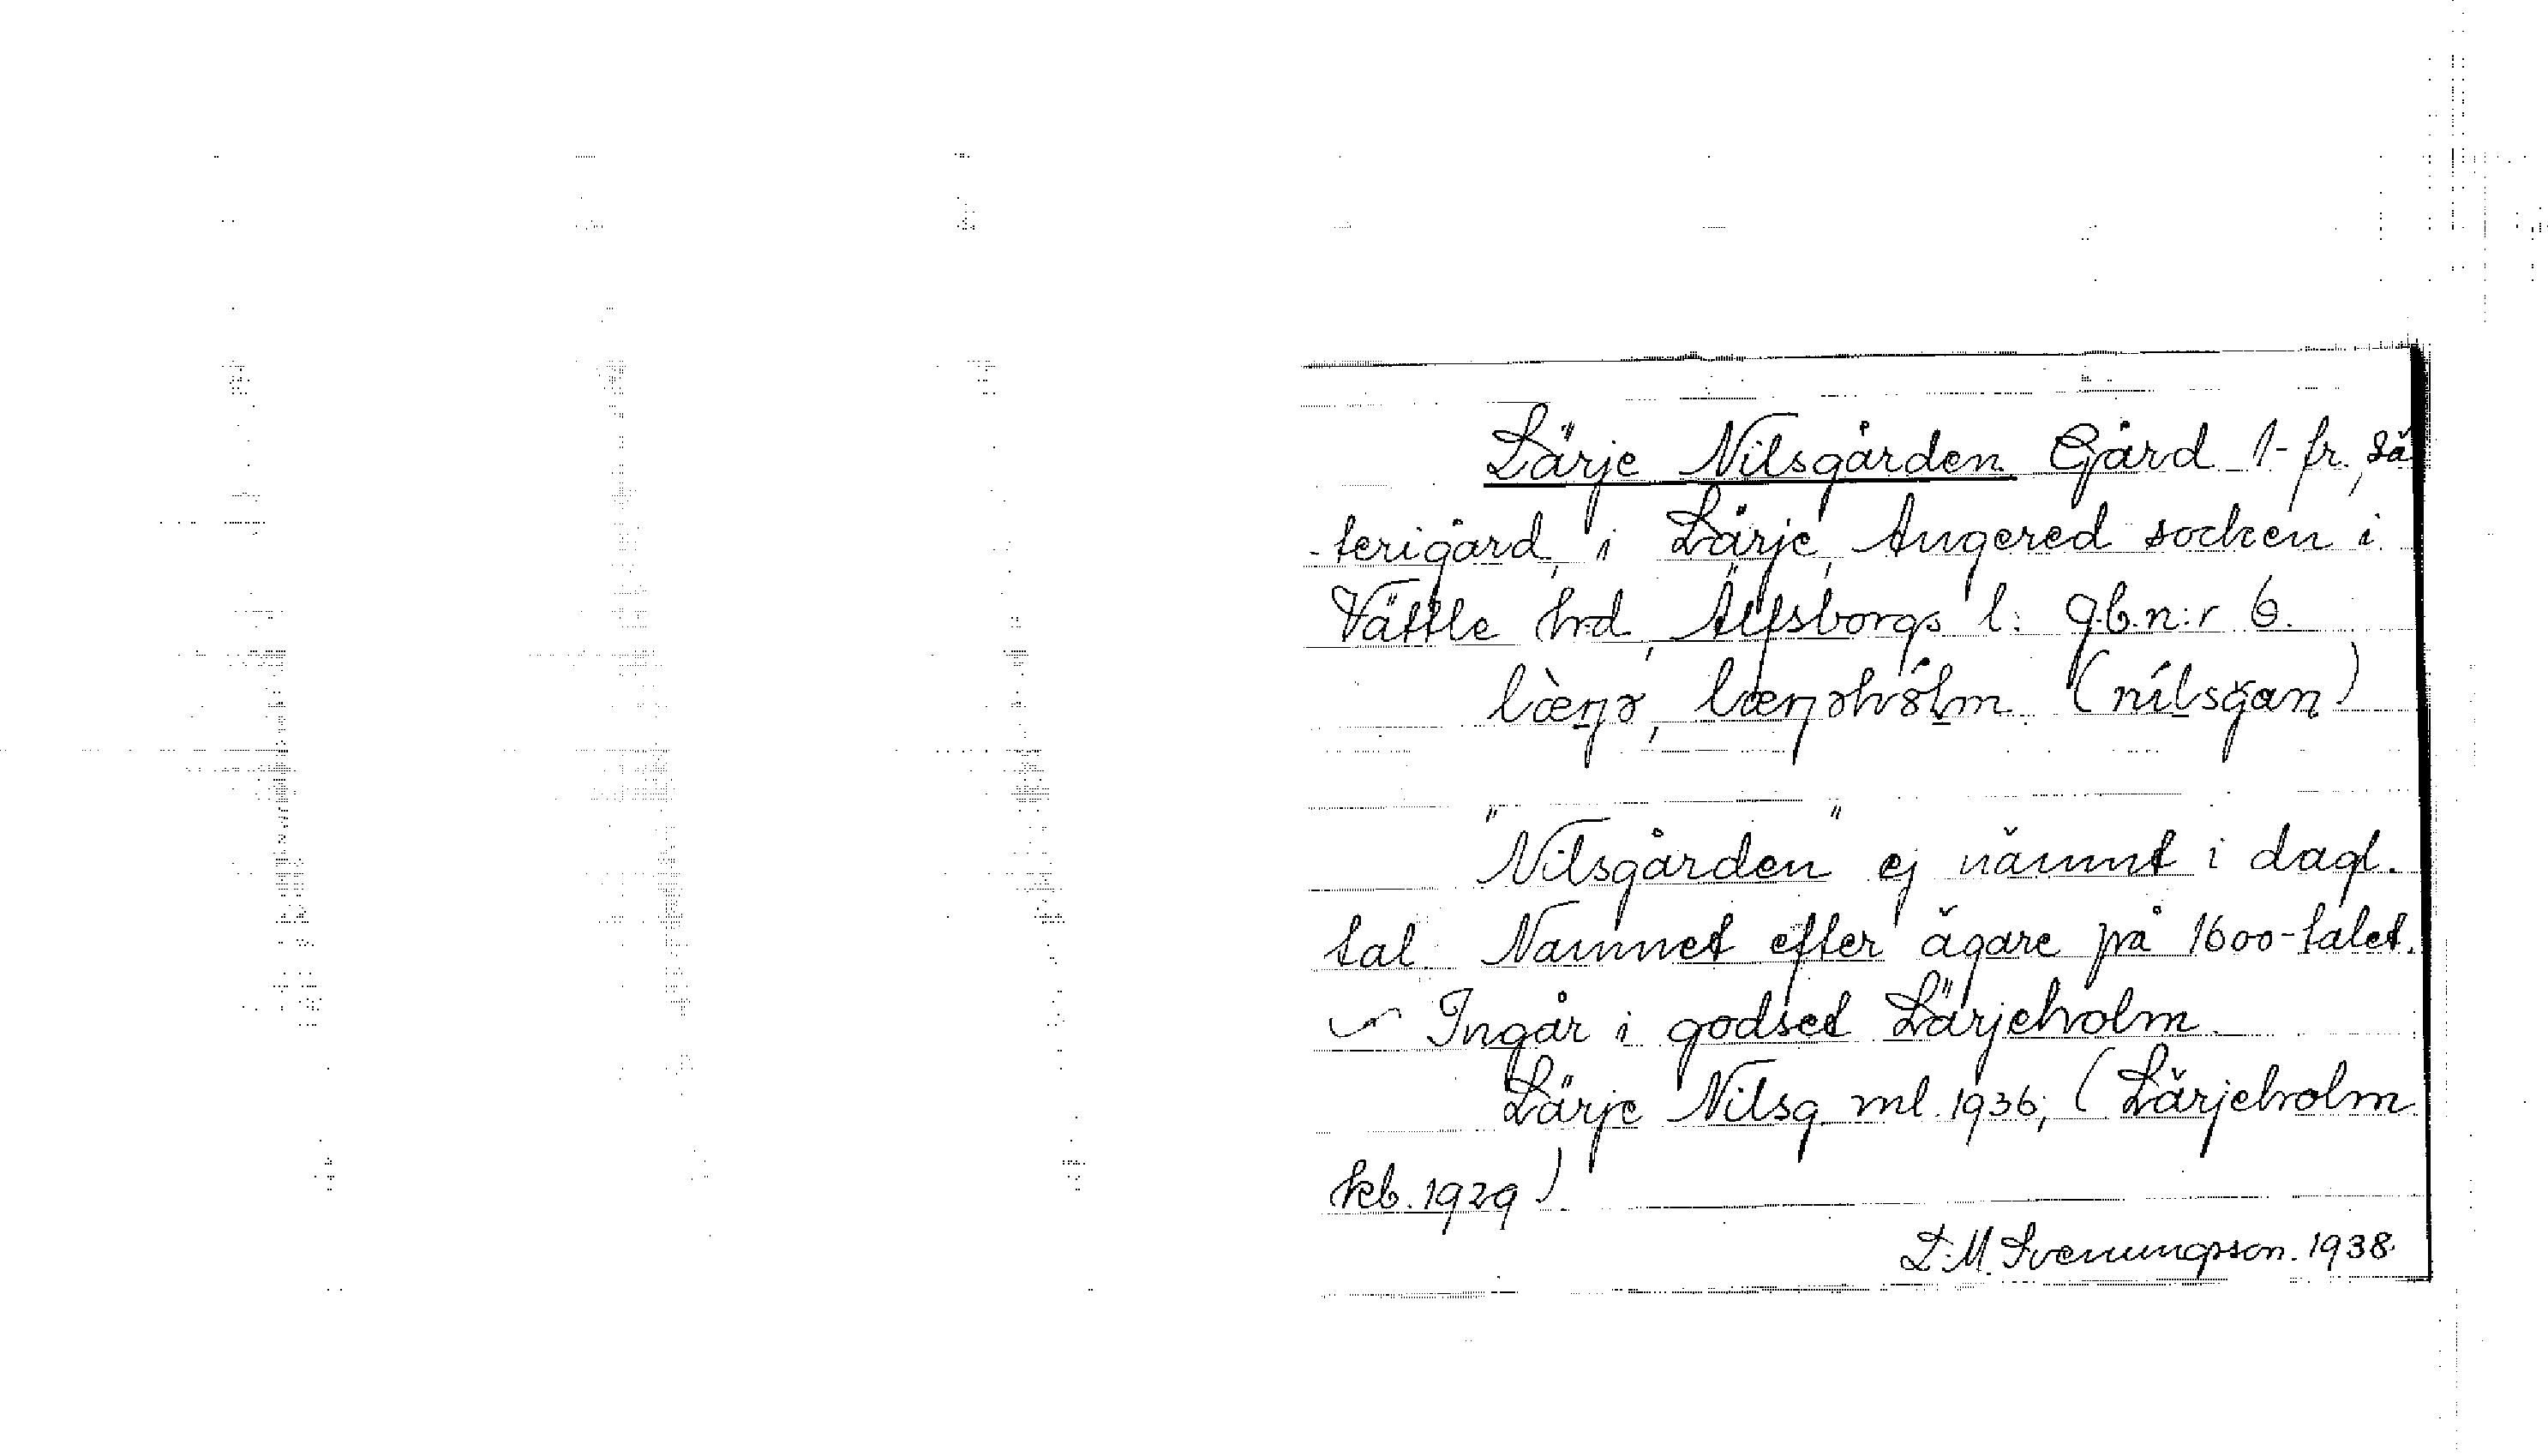 Lärje Nilsgården. Gård 1- fr. sä
-terigård, i Lärje, Angered socken i
Vättle hrd, Älfsborgs l: g.b.n:r 6.
"Nilsgården" ej nämnt i dagl.
tal. Namnet efter ägare på 1600-talet.
Ingår i godset Lärjeholm.
Lärje Nilsg. ml. 1936; (Lärjeholm
kb. 1929)
L. M. Svenungsson. 1938.